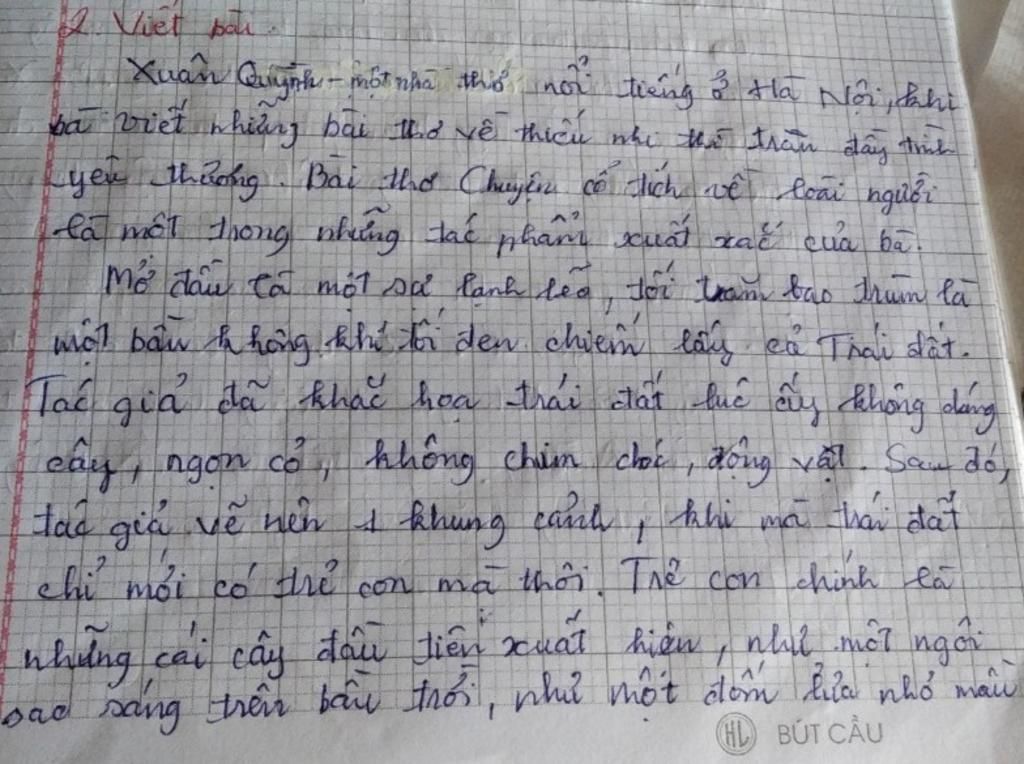 2. Viết bài.
Xuân Quỳnh - một nhà thơ nổi tiếng ở Hà Nội, khi
bà viết những bài thơ về thiếu nhi thì tràn đầy tình
yêu thương. Bài thơ Chuyện cổ tích về loài người
là một trong những tác phẩm xuất xắc của bà.
Mở đầu là một sự lạnh lẽo, tối tăm bao trùm là
một bầu không khí tối đen chiếm lấy cả Trái đất.
Tác giả đã khắc họa trái đất lúc ấy không dáng
cây, ngọn cỏ, không chim chóc, động vật. Sau đó,
tác giả vẽ nên 1 khung cảnh, khi mà trái đất
chỉ mới có trẻ con mà thôi. Trẻ con chính là
những cái cây đầu tiên xuất hiện, như một ngôi
sao sáng trên bầu trời, như một đốm lửa nhỏ màu
HL BÚT CẦU